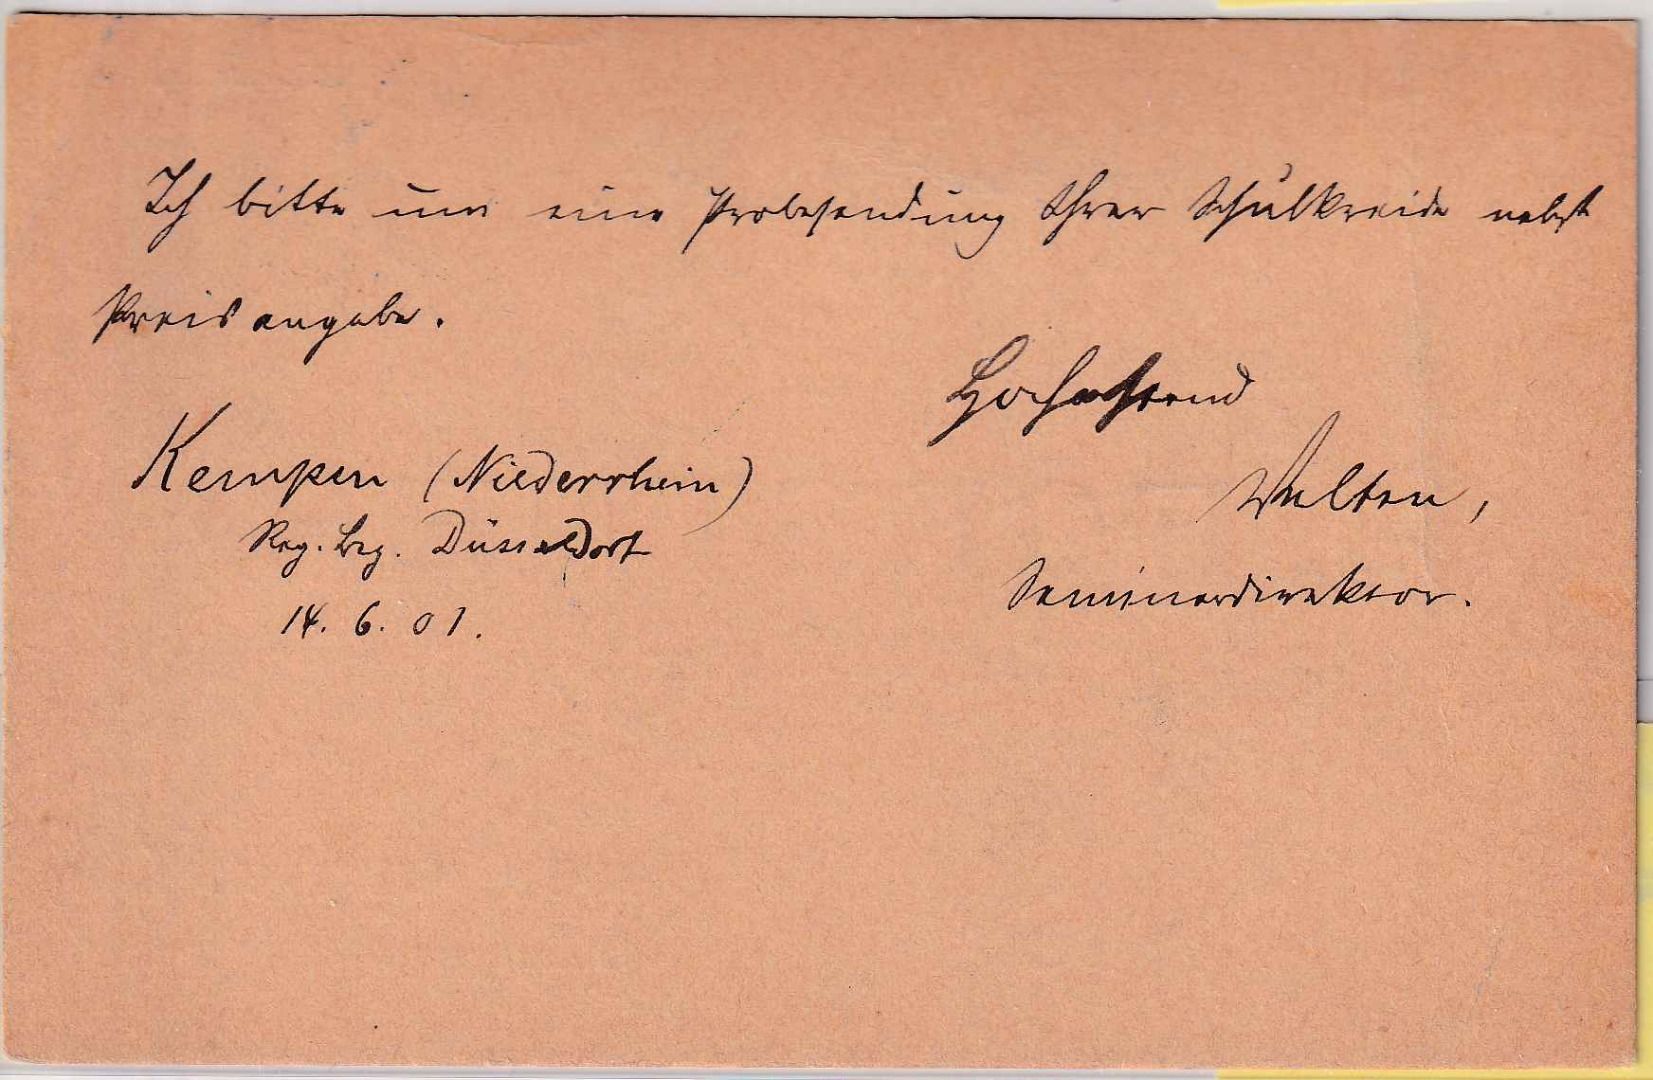 Ich bitte um eine Probesendung Ihrer Schulkreide nebst
Preisangabe.
Hochachtend
Kempen (Niederrhein)
Reg. Bez. Düsseldorf
14. 6. 01.
Seminardirektor.